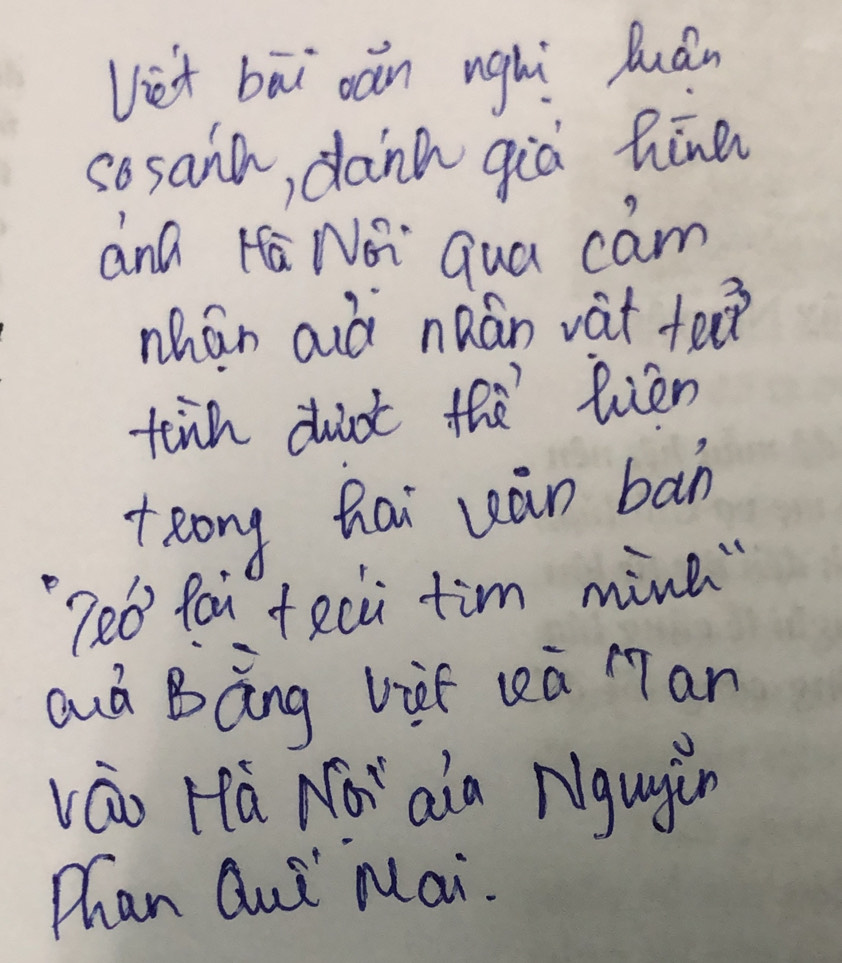 Viết bài văn nghị luận
so sánh, đánh giá hình
ảnh Hà Nội qua cảm
nhận của nhân vật trữ
tình được thể hiện
trong hai văn bản
"Trở lại trái tim mình"
của Bằng Việt và "Tan
vào Hà Nội" của Nguyễn
Phan Quế Mai.